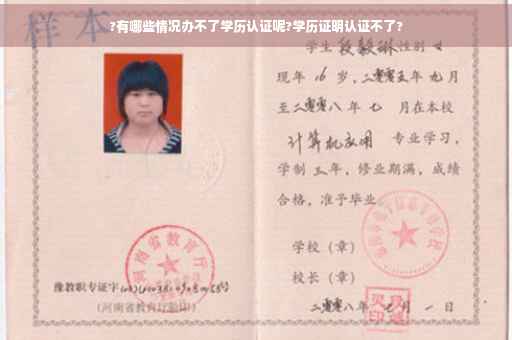 ?有哪些情况办不了学历认证呢?学历证明认证不了?
样本
学生 段毅琳 性别 女
现年 16 岁，二零零五年 九 月
至二零零八年 七 月在本校
计算机应用 专业学习，
学制 三 年，修业期满，成绩
合格，准予毕业
学校（章）
校长（章）
河南省教育厅
豫教职专证字
(河南省教育厅验印)
二零零八年 七 月 一 日